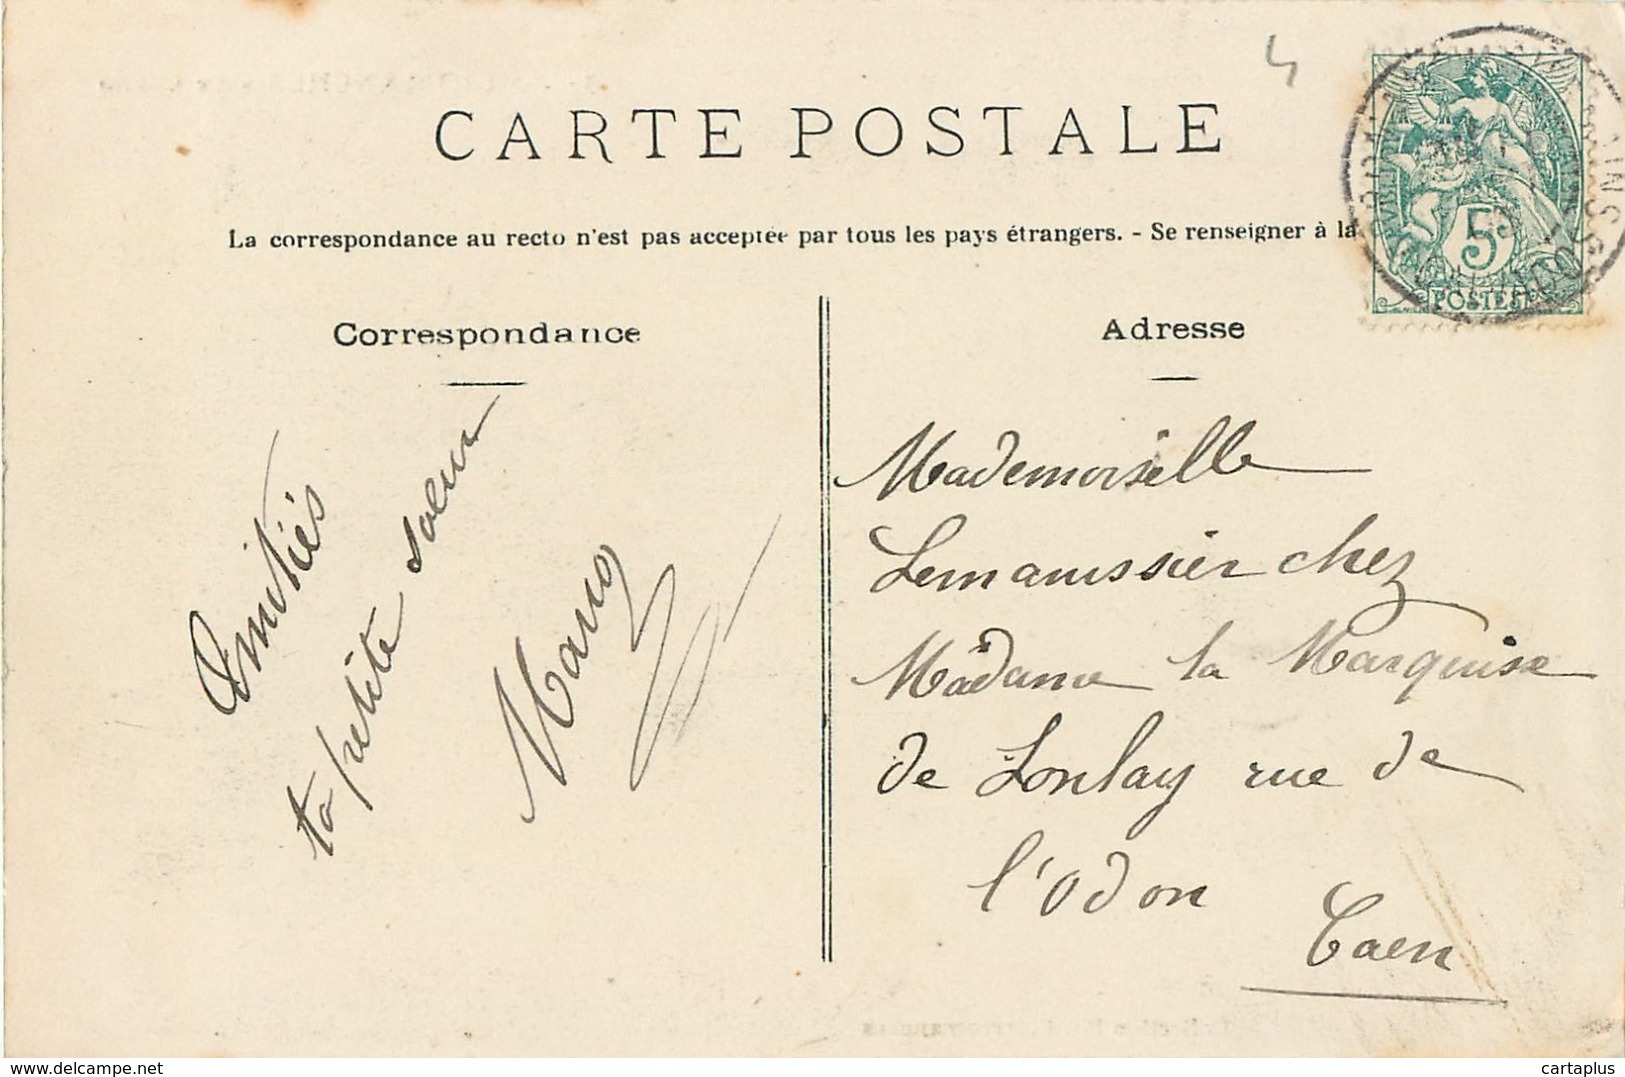 4
CARTE POSTALE
La correspondance au recto n'est pas acceptée par tous les pays étrangers. - Se renseigner à la
Correspondance
Amitiés
ta petite soeur
Adresse
Mademoiselle
Lemaussier chez
Madame la Marquise
de Lonlay rue de
l'Odon
Caen
5
POSTES
www.delcampe.net
cartaplus